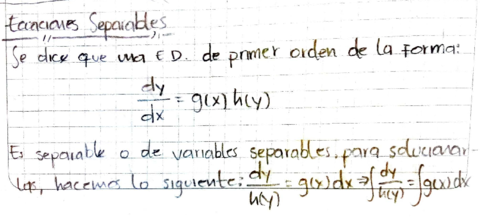 Ecuaciones Separables
Se dice que una E D. de primer orden de la forma:
dy/dx = g(x) h(y)
Es separable o de variables separables. para solucionar-
las, hacemos lo siguiente: dy/h(y) = g(x) dx ⇒ ∫ dy/h(y) = ∫ g(x) dx